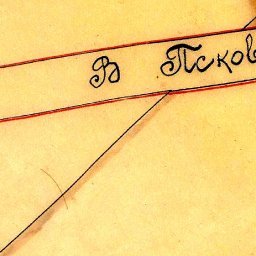 В Псков